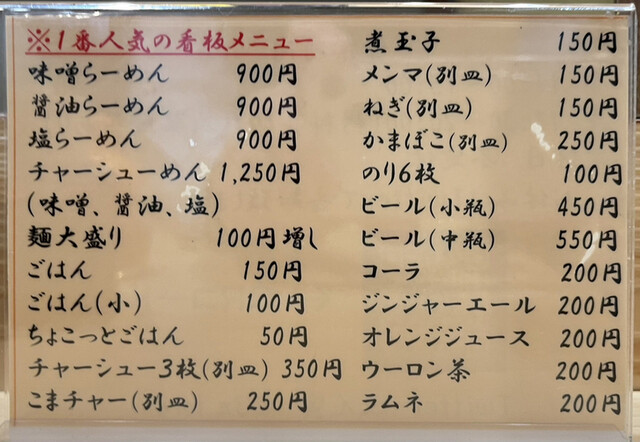 ※1番人気の看板メニュー
味噌らーめん 900円
醤油らーめん 900円
塩らーめん 900円
チャーシューめん 1,250円
(味噌、醤油、塩)
麺大盛り 100円増し
ごはん 150円
ごはん(小) 100円
ちょこっとごはん 50円
チャーシュー3枚(別皿) 350円
こまチャー(別皿) 250円
煮玉子 150円
メンマ(別皿) 150円
ねぎ(別皿) 150円
かまぼこ(別皿) 250円
のり6枚 100円
ビール(小瓶) 450円
ビール(中瓶) 550円
コーラ 200円
ジンジャーエール 200円
オレンジジュース 200円
ウーロン茶 200円
ラムネ 200円